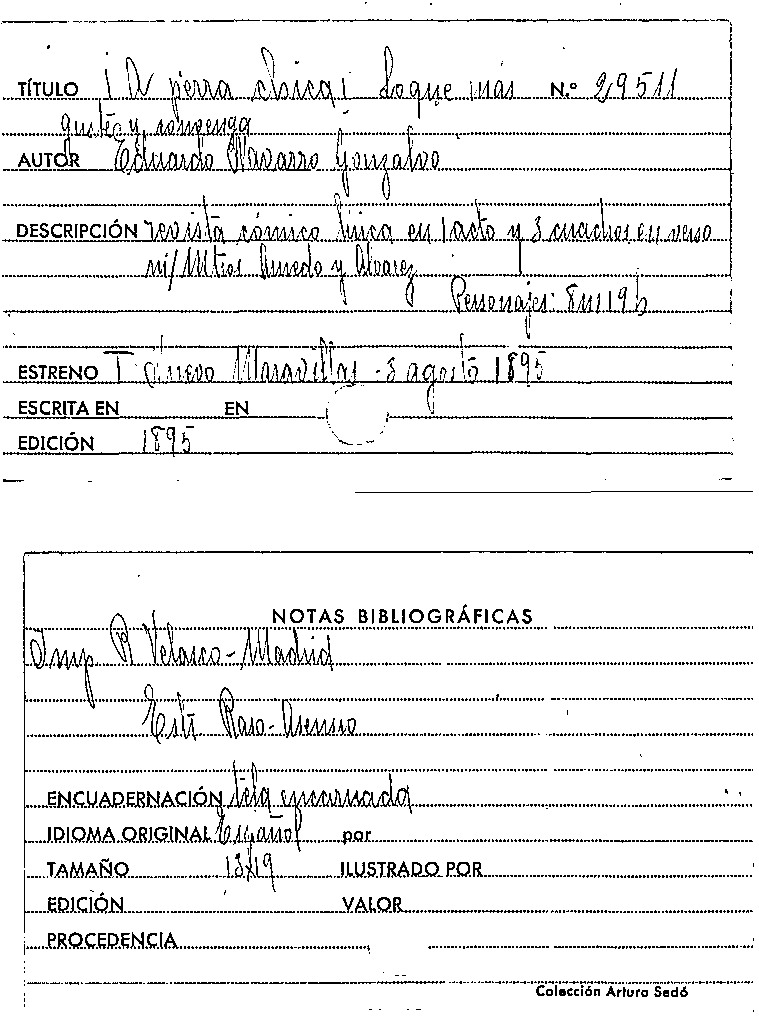 TÍTULO ¡A perra chica! Lo que más N.º 29511
guste y convenga
AUTOR Eduardo Navarro Gonzalvo
DESCRIPCIÓN revista cómico lírica en 1 acto y 3 cuadros en verso
m/ Mtros Arnedo y Alvarez
Personajes: 8m 19h
ESTRENO T Nuevo Maravillas - 3 agosto 1895
ESCRITA EN EN
EDICIÓN 1895
NOTAS BIBLIOGRÁFICAS
Imp R Velasco - Madrid
Raso-
ENCUADERNACIÓN tela encarnada
IDIOMA ORIGINAL Español por
TAMAÑO 13x19 ILUSTRADO POR
EDICIÓN VALOR
PROCEDENCIA
Colección Arturo Sedó